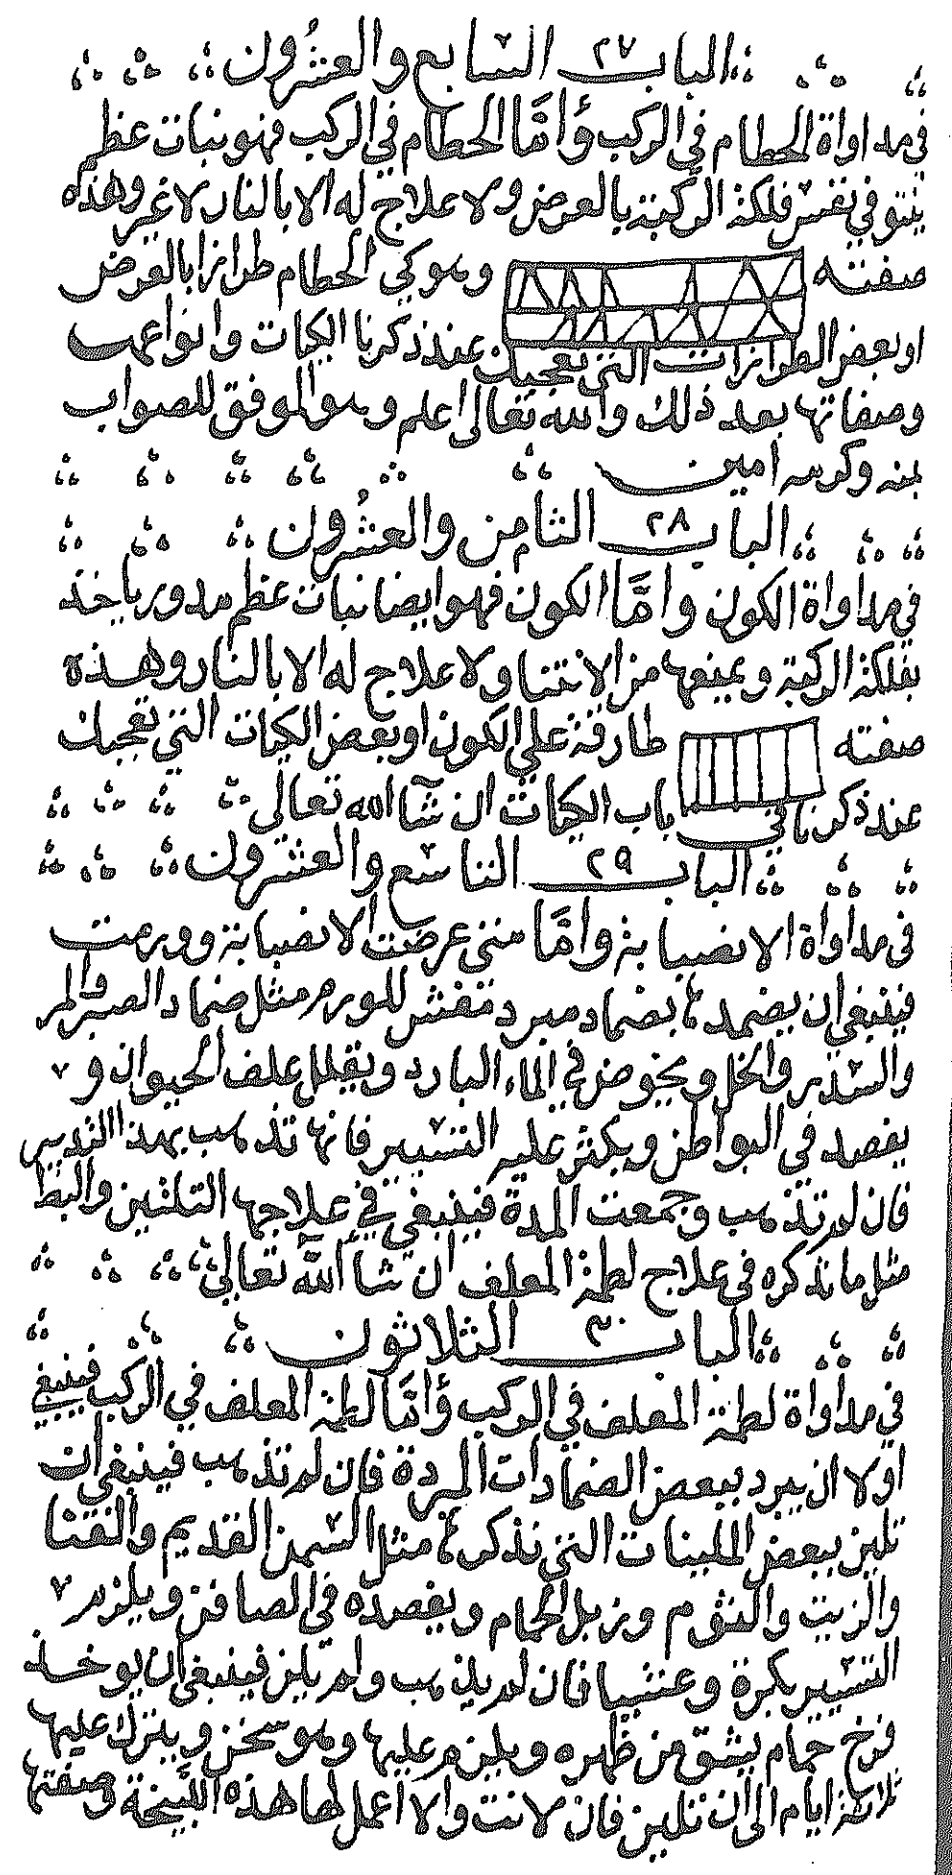 الباب ٢٧ السابع والعشرون
في مداواة الحطام في الركب وأمّا الحطام في الركب فهو نبات عظم
ينتو في نفس فلكة الركبة بالعرض ولا علاج له الا بالنار لا غير وهذه
صفته وهو كي الحطام طرازا بالعرض
او بعض الطرازات التي تعجبك عند ذكرنا الكيات وانواعها
وصفاتها بعد ذلك والله تعالى اعلم وهو الموفق للصواب
بمنه وكرمه امين
الباب ٢٨ الثامن والعشرون
في مداواة الكون وامّا الكون فهو ايضا نبات عظم مدور ياخذ
بفلكة الركبة ويمنعها من الانثنا ولا علاج له الا بالنار وهذه
صفته طارقة على الكون او بعض الكيات التي تعجبك
عند ذكرنا في باب الكيات ان شآ الله تعالى
الباب ٢٩ التاسع والعشرون
في مداواة الانصبابة وامّا متى عرضت الانصبابة وورمت
فينبغي ان يضمدها بضماد مبرد تفش للورم مثل ضماد الصبر والمر
والسدر والخل ويخوض في الماء البارد ويقلل علف الحيوان و
يفصد في البواطن ويكثر عليه التسيير فانها تذهب بهذا التدبير
فان لم تذهب وجمعت المدة فينبغي في علاجها التلين والبط
مثل ما نذكره في علاج لطمة المعلف ان شآ الله تعالى
الباب ٣٠ الثلاثون
في مداواة لطمة المعلف في الركب وأمّا لطمة المعلف في الركب فينبغي
اولا ان يبرد ببعض الضمادات المبردة فان لم تذهب فينبغي ان
تلين ببعض الملينات التي نذكرها مثل السمن القديم والقثا
والزيت والثوم وزبل الحمام ويفصده في الصافن ويلزم
التسيير بكرة وعشيا فان لم يذهب ولم تلين فينبغي ان يوخذ
فرخ حمام يشق من ظهره ويلزم عليها وهو سخن ويترك عليها
ثلاثة ايام الى ان تلين فان لانت والا اعمل لها هذه اللبيخة وصفتها